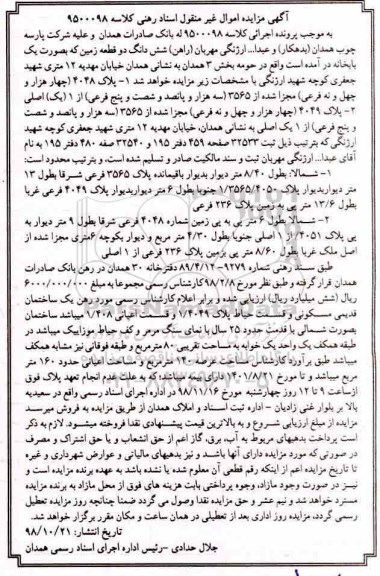 آگهی مزایده اموال غیر منقول اسناد رهنی کلاسه ۹۵۰۰۰۹۸
به موجب پرونده اجرائی کلاسه ۹۵۰۰۰۹۸ له بانک صادرات همدان و علیه شرکت پارسه
چوب همدان (بدهکار) و عبدا... ارژنگی مهربان (راهن) شش دانگ دو قطعه زمین که بصورت یک
بابخانه در آمده است واقع در حومه بخش ۳ همدان به نشانی همدان خیابان مهدیه ۱۲ متری شهید
جعفری کوچه شهید ارژنگی با مشخصات زیر مزایده خواهد شد ۱- پلاک ۴۰۴۸ (چهار هزار و
چهل و نه فرعی) مجزا شده از ۳۵۶۵ (سه هزار و پانصد و شصت و پنج فرعی) از ۱ (یک) اصلی
۲- پلاک ۴۰۴۹ (چهار هزار و چهل و نه فرعی) مجزا شده از ۳۵۶۵ (سه هزار و پانصد و شصت
و پنج فرعی) از ۱ یک اصلی به نشانی همدان، خیابان مهدیه ۱۲ متری شهید جعفری کوچه شهید
ارژنگی که بترتیب ذیل ثبت ۳۲۵۳۳ صفحه ۴۵۹ دفتر ۱۹۵ و ۳۲۵۴۰ صفه ۴۸۰ دفتر ۱۹۵ به نام
آقای عبدا... ارژنگی مهربان ثبت و سند مالکیت صادر و تسلیم شده است، و بترتیب محدود است:
۱- شمالا: بطول ۸/۴۰ متر دیوار بدیوار باقیمانده پلاک ۳۵۶۵ فرعی شرقا بطول ۱۳
متر دیواربدیوار پلاک ۱/۳۵۶۵/۴۰۵۰ جنوبا بطول ۶ متر دیواربدیوار پلاک ۴۰۴۹ فرعی غربا
بطول ۱۳/۶ متر پی به زمین پلاک ۲۳۶ فرعی
۲- شمالا بطول ۶ متر پی به پی زمین شماره ۴۰۴۸ فرعی شرقا بطول ۹ متر دیوار به
پی پلاک ۲/۴۰۵۱ از ۱ اصلی جنوبا بطول ۴/۳۰ متر مربع و دیوار بکوچه ۶متری مجزا شده از
اصل ملک غربا بطول ۸/۶۰ متر پی بزمین پلاک ۲۳۶ فرعی از ۱ اصلی
طبق سند رهنی شماره ۹۲۷۹-۸۹/۴/۱۲ دفترخانه ۳۰ همدان در رهن بانک صادرات
همدان قرار گرفته و طبق نظر مورخ ۹۸/۲/۸ کارشناس رسمی مجموعا به مبلغ ۶۰۰۰/۰۰۰/۰۰۰
ریال (شش میلیارد ریال) ارزیابی شده و برابر اعلام کارشناس رسمی موردرهن یک ساختمان
قدیمی مسکونی و قسمت حیاط پلاک ۱/۴۰۴۹ و قسمت انتهایی ۱/۴۰۸ میباشد ساختمان
بصورت شمالی با قدمت حدود ۲۵ سال با نمای سنگ مرمر و کف حیاط موزاییک میباشد در
طبقه همکف یک واحد یک خوابه به مساحت تقریبی ۸۰مترمربع و طبقه فوقانی نیز مشابه همکف
میباشد طبق برآورد کارشناس مساحت عرصه ۱۴۰ مترمربع و مساحت اعیانی حدود ۱۶۰ متر
مربع میباشد و تا مورخ ۱۴۰۱/۸/۲۱ دارای بیمه میباشد، که به علت عدم انجام تعهد پلاک فوق
ازساعت ۹ تا ۱۲ روز چهارشنبه مورخ ۹۸/۱۱/۱۶ در اداره اجرای اسناد رسمی واقع در سعیدیه
بالا بر بلوار غنی زادیان – اداره ثبت اسناد و املاک همدان از طریق مزایده به فروش میرسد
مزایده از مبلغ ارزیابی شروع و به بالاترین قیمت پیشنهادی نقدا فروخته میشود. لازم به ذکر
است پرداخت بدهیهای مربوط به آب، برق، گاز اعم از حق انشعاب و یا حق اشتراک و مصرف
در صورتی که مورد مزایده دارای آنها باشد و نیز بدهیهای مالیاتی و عوارض شهرداری و غیره
تا تاریخ مزایده اعم از اینکه رقم قطعی آن معلوم شده یا نشده باشد به عهده برنده مزایده است و
نیز در صورت وجود مازاد، وجوه پرداختی بابت هزینه های فوق از محل مازاد به برنده مزایده
مسترد خواهد شد و نیم عشر و حق مزایده نقدا وصول می گردد ضمنا چنانچه روز مزایده تعطیل
رسمی گردد، مزایده روز اداری بعد از تعطیلی در همان ساعت و مکان مقرر برگزار خواهد شد.
تاریخ انتشار: ۹۸/۱۰/۲۱
جلال حدادی –رئیس اداره اجرای اسناد رسمی همدان